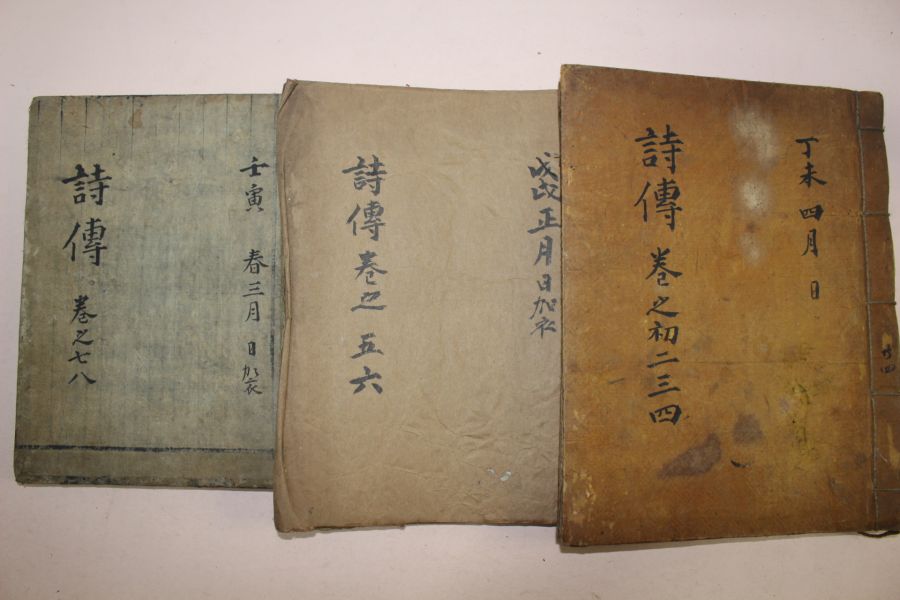 丁未 四月 日
詩傳 卷之初二三四
戊戌正月日加衣
詩傳卷之五六
壬寅 春三月 日加衣
詩傳 卷之七八